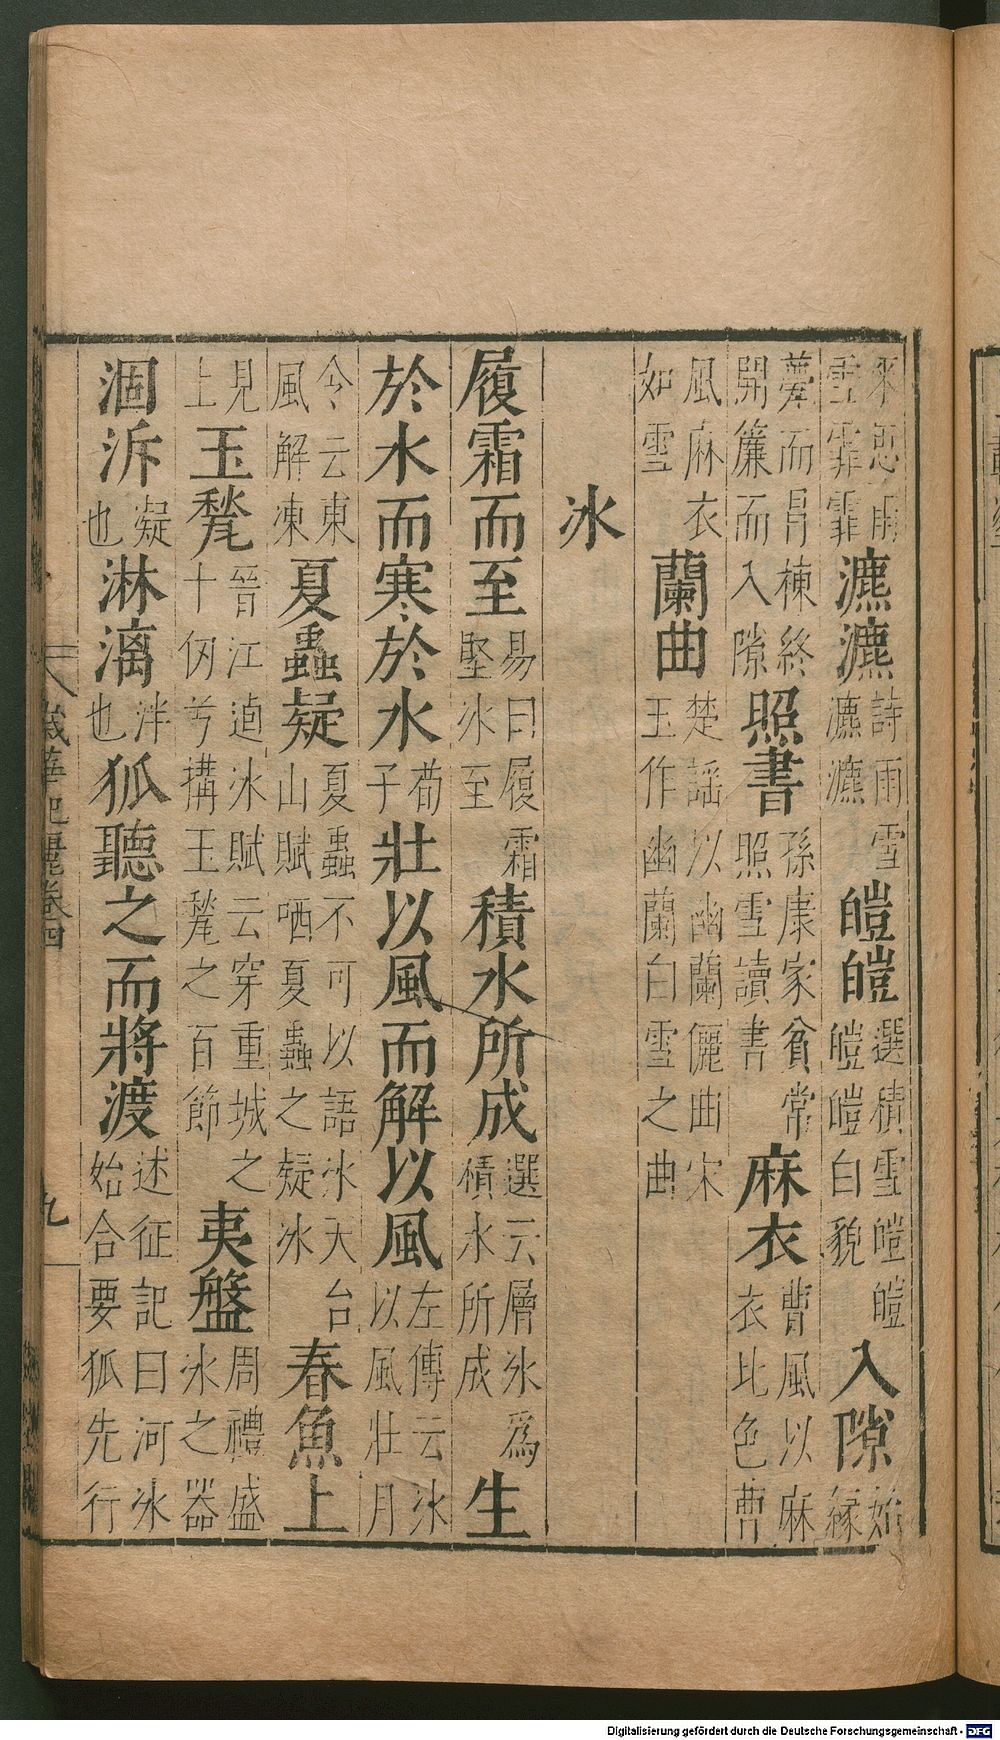 來思雨雪霏霏瀌瀌詩雨雪瀌瀌皚皚選積雪皚皚皚皚白貌入隙始緣
甍而冐棟終開簾而入隙照書孫康家貧常照雪讀書麻衣曹風以麻衣比色曹
風麻衣如雪蘭曲楚謡以幽蘭儷曲宋玉作幽蘭白雪之曲
冰
履霜而至易曰履霜堅冰至積水所成選云層冰爲積水所成生
於水而寒於水荀子壯以風而解以風左傳云冰以風壯月
令云東風解凍夏蟲疑夏蟲不可以語冰天台山賦哂夏蟲之疑冰春魚上
見上玉甃晉江逌冰賦云穿重城之十仞兮搆玉甃之百節夷盤周禮盛冰之器
涸泝凝也淋漓泮也狐聽之而將渡述征記曰河冰始合要狐先行
歲華紀麗卷四
九
Digitalisierung gefördert durch die Deutsche Forschungsgemeinschaft - DFG